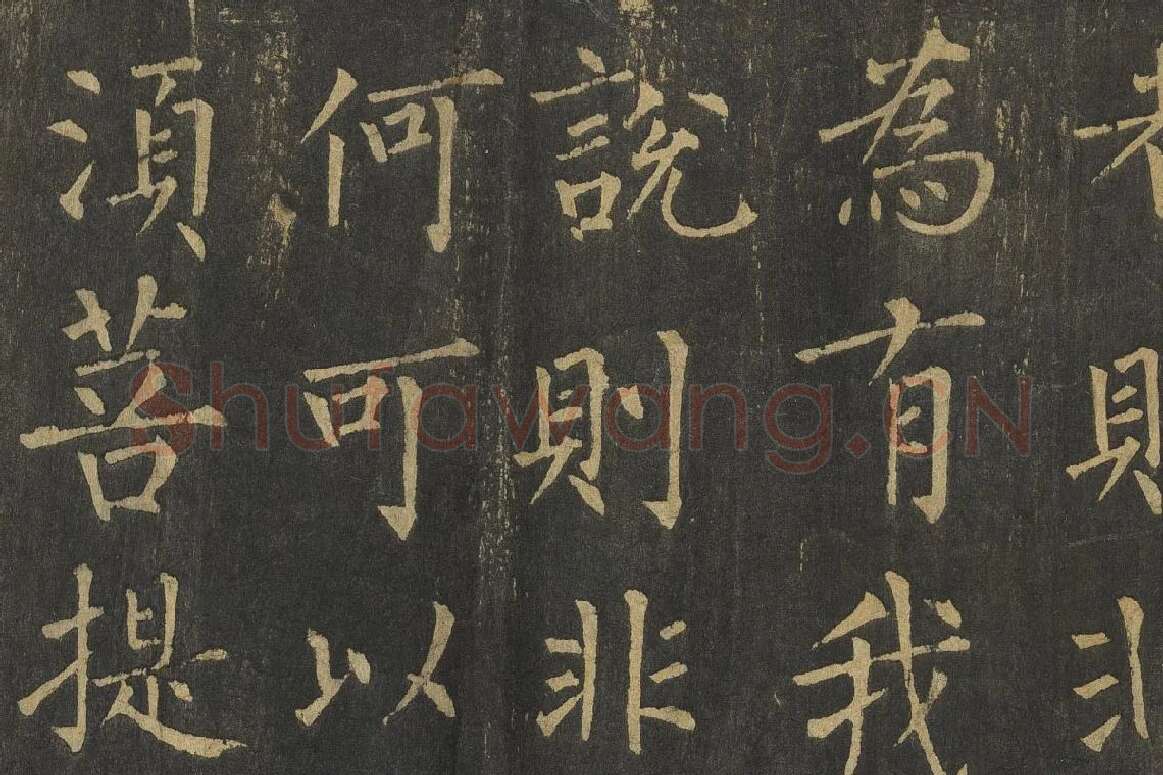 為有我
説則非
何可以
湏菩提
Shufawang.CN